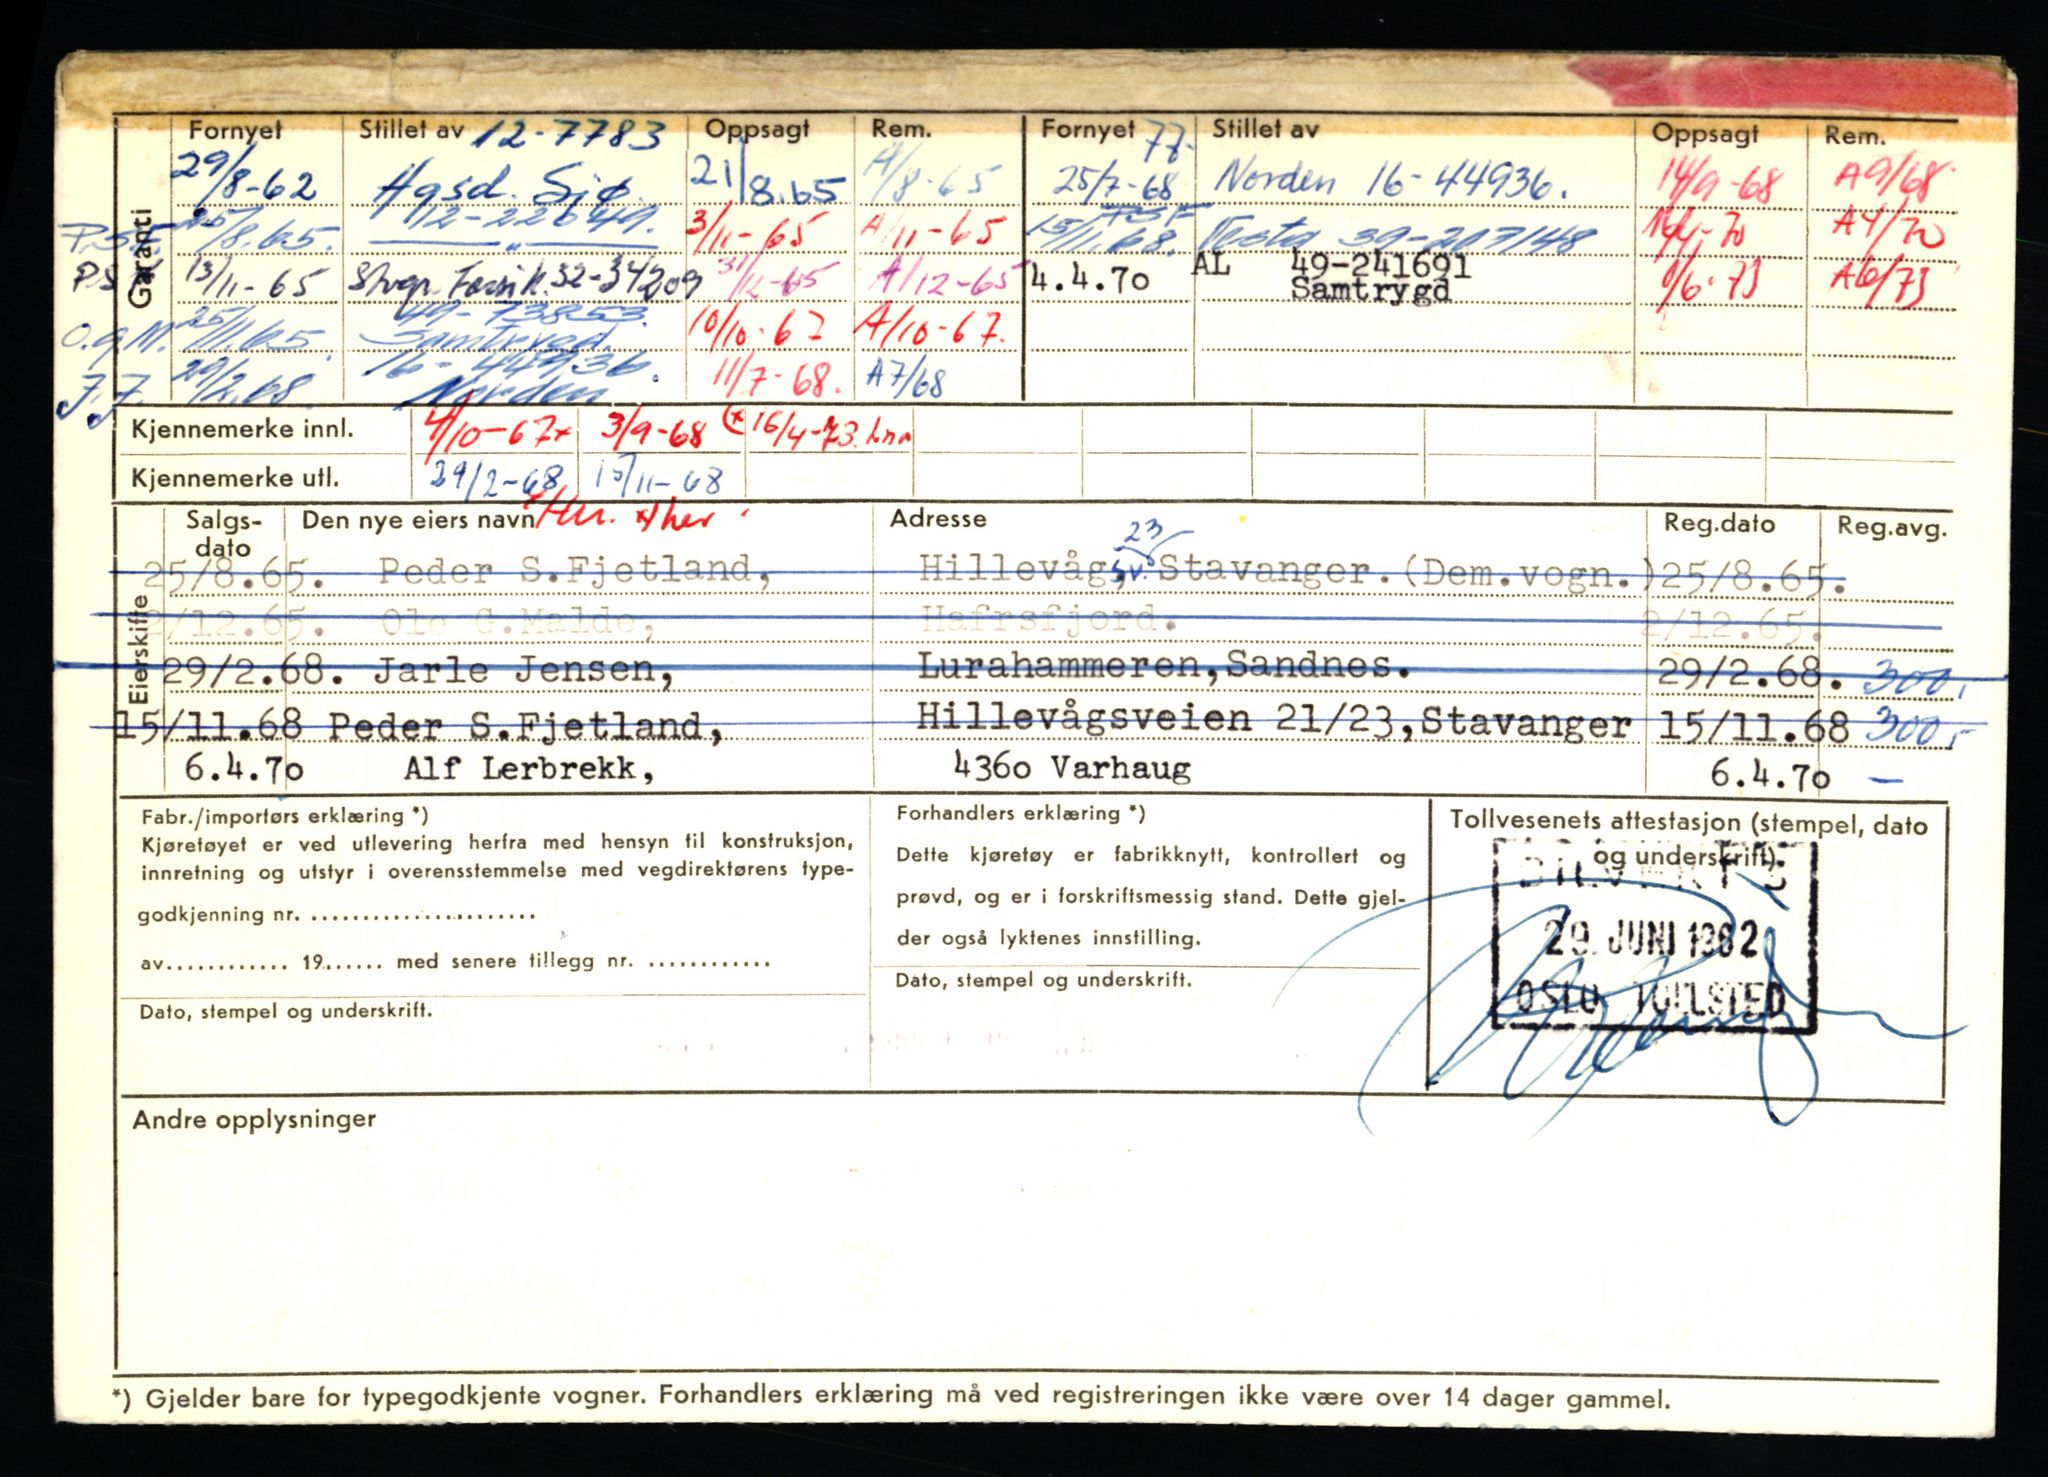 Garanti
Fornyet Stillet av 12-7783 Oppsagt Rem. Fornyet 77- Stillet av Oppsagt Rem.
29/8-62 Hgsd. Sjø. 21/8.65 A/8-65 25/7-68 Norden 16-44936. 14/9-68 A9/68
P.S.F. 25/8.65. 12-22649. 3/11-65 A/11-65 15/11.68. Vesta 39-207148 A4/70
P.S.F. 13/11-65 Stvgr. Forsik. 32-34209 31/12-65 A/12-65 4.4.70 AL 49-241691 1/6-73 A6/73
Samtrygd
O.G.M. 25/11.65. 49-73853. Samtrygd. 10/10-67 A/10-67.
J.J. 29/2.68. 16-44936. Norden 11/7-68. A7/68
Kjennemerke innl. 4/10-67x 3/9-68 (x 16/4-73.
Kjennemerke utl. 29/2-68 15/11-68
Eierskifte
Salgs-dato Den nye eiers navn Adresse Reg.dato Reg.avg.
23
25/8.65. Peder S.Fjetland, Hillevåg, sv. Stavanger.(Dem.vogn.) 25/8.65.
2/12.65. Ole G.Malde, Hafrsfjord. 2/12.65.
29/2.68. Jarle Jensen, Lurahammeren,Sandnes. 29/2.68. 300,
15/11.68 Peder S.Fjetland, Hillevågsveien 21/23,Stavanger 15/11.68 300,
6.4.70 Alf Lerbrekk, 4360 Varhaug 6.4.70 —
Fabr./importørs erklæring *)
Kjøretøyet er ved utlevering herfra med hensyn til konstruksjon,
innretning og utstyr i overensstemmelse med vegdirektørens type-
godkjenning nr. ......................
av............ 19...... med senere tillegg nr. ............
Dato, stempel og underskrift.
Forhandlers erklæring *)
Dette kjøretøy er fabrikknytt, kontrollert og
prøvd, og er i forskriftsmessig stand. Dette gjel-
der også lyktenes innstilling.
Dato, stempel og underskrift.
Tollvesenets attestasjon (stempel, dato
og underskrift)
29. JUNI 1962
OSLO TOLLSTED
Andre opplysninger
*) Gjelder bare for typegodkjente vogner. Forhandlers erklæring må ved registreringen ikke være over 14 dager gammel.